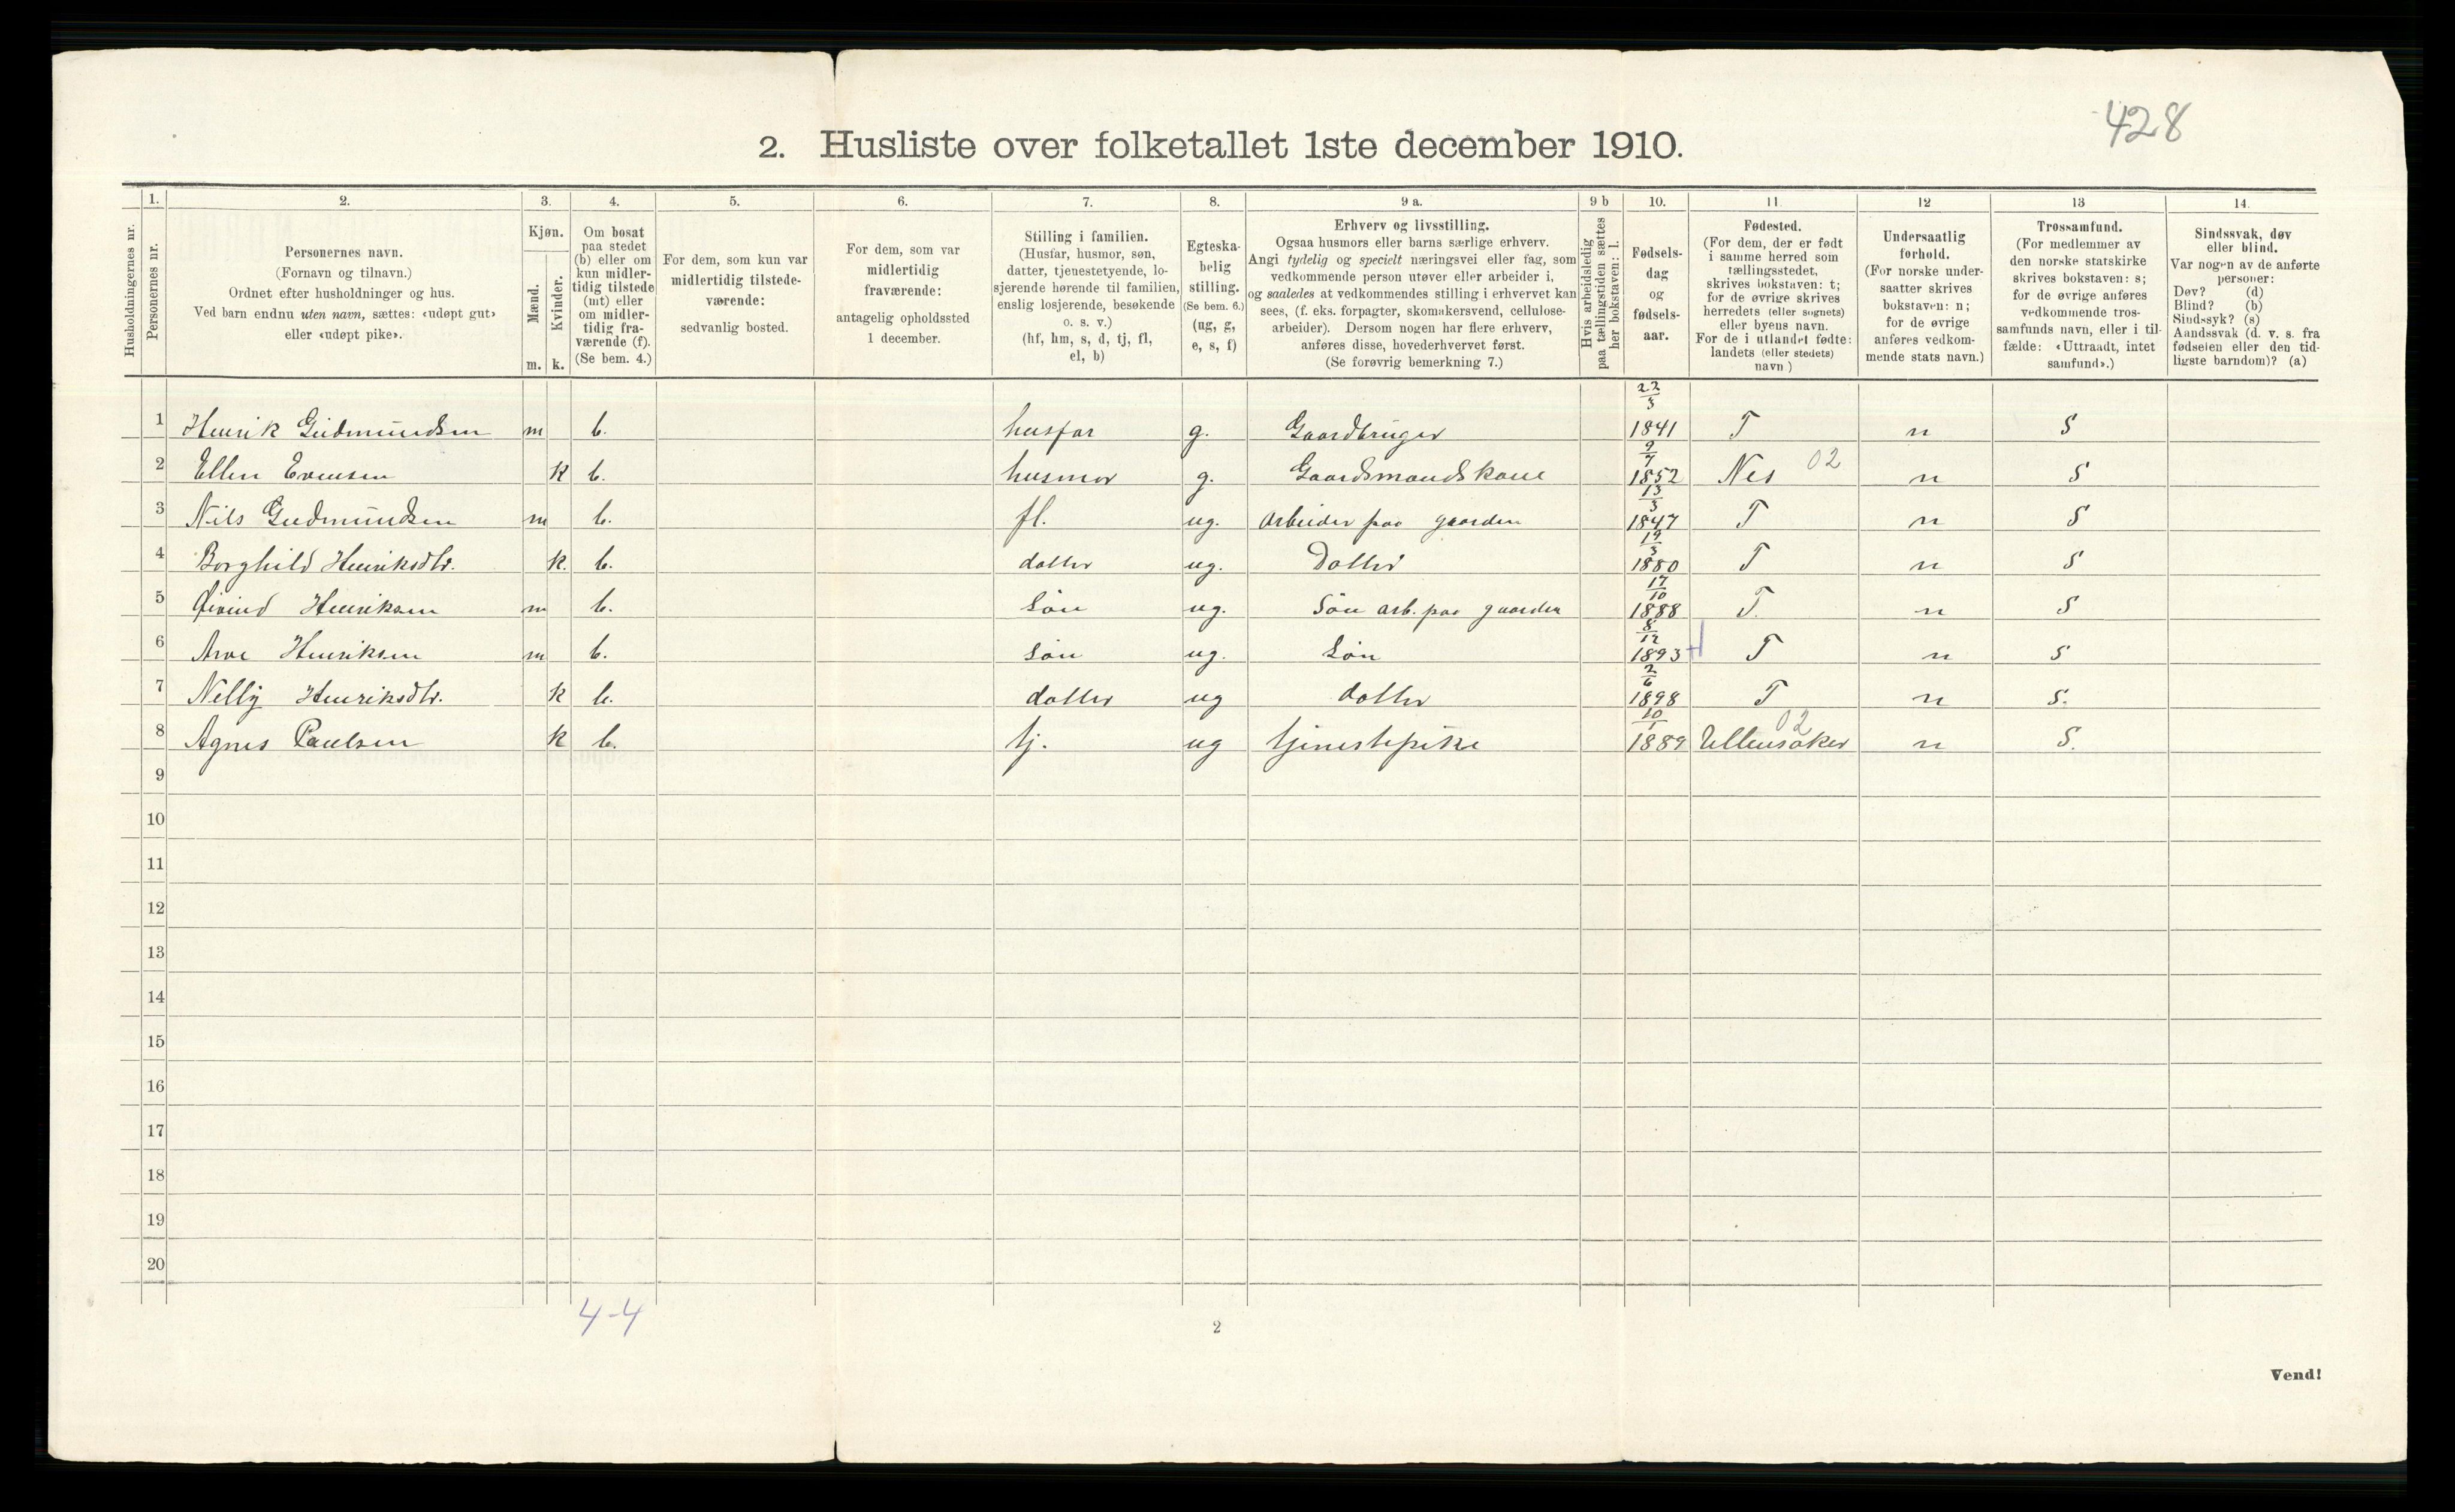 428
2. Husliste over folketallet 1ste december 1910.
Husholdningernes nr.
1.
Personernes nr.
2.
Personernes navn.
(Fornavn og tilnavn.)
Ordnet efter husholdninger og hus.
Ved barn endnu uten navn, sættes: «udøpt gut»
eller «udøpt pike».
3.
Kjøn.
Mænd.
Kvinder.
m. k.
4.
Om bosat
paa stedet
(b) eller om
kun midler-
tidig tilstede
(mt) eller
om midler-
tidig fra-
værende (f).
(Se bem. 4.)
5.
For dem, som kun var
midlertidig tilstede-
værende:
sedvanlig bosted.
6.
For dem, som var
midlertidig
fraværende:
antagelig opholdssted
1 december.
7.
Stilling i familien.
(Husfar, husmor, søn,
datter, tjenestetyende, lo-
sjerende hørende til familien,
enslig losjerende, besøkende
o. s. v.)
(hf, hm, s, d, tj, fl,
el, b)
8.
Egteska-
belig
stilling.
(Se bem. 6.)
(ug, g,
e, s, f)
9 a.
Erhverv og livsstilling.
Ogsaa husmors eller barns særlige erhverv.
Angi tydelig og specielt næringsvei eller fag, som
vedkommende person utøver eller arbeider i,
og saaledes at vedkommendes stilling i erhvervet kan
sees, (f. eks. forpagter, skomakersvend, cellulose-
arbeider). Dersom nogen har flere erhverv,
anføres disse, hovederhvervet først.
(Se forøvrig bemerkning 7.)
9 b
Hvis arbeidsledig
paa tællingstiden sættes
her bokstaven: l.
10.
Fødsels-
dag
og
fødsels-
aar.
11.
Fødested.
(For dem, der er født
i samme herred som
tællingsstedet,
skrives bokstaven: t;
for de øvrige skrives
herredets (eller sognets)
eller byens navn.
For de i utlandet fødte:
landets (eller stedets)
navn)
12
Undersaatlig
forhold.
(For norske under-
saatter skrives
bokstaven: n;
for de øvrige
anføres vedkom-
mende stats navn.)
13
Trossamfund.
(For medlemmer av
den norske statskirke
skrives bokstaven: s;
for de øvrige anføres
vedkommende tros-
samfunds navn, eller i til-
fælde: «Uttraadt, intet
samfund».)
14.
Sindssvak, døv
eller blind.
Var nogen av de anførte
personer:
Døv? (d)
Blind? (b)
Sindssyk? (s)
Aandssvak (d. v. s. fra
fødselen eller den tid-
ligste barndom)? (a)
1 Henrik Gudmundsen m b. husfar g. Gaardbruger 22/3 1841 T n S
2 Ellen Evensen k b. husmor g. Gaardsmandskone 9/7 1852 Nes 02 n S
3 Nils Gudmundsen m b. fl. ug. Arbeider paa gaarden 13/3 1847 T n S
4 Borghild Henriksdtr. k. b. datter ug. Datter 19/3 1880 T n S
5 Øivind Henriksen m b. Søn ug. Søn arb. paa gaarden 17/10 1888 T. n S
6 Arve Henriksen m b. Søn ug. Søn 8/12 1893 T n S
7 Nelly Henriksdtr. k b. datter ug datter 2/6 1898 T n S.
8 Agnes Paulsen k b. tj. ug tjenestepike 10/1 1889 Ullensaker 02 n S.
9
10
11
12
13
14
15
16
17
18
19
20
4-4
2
Vend!